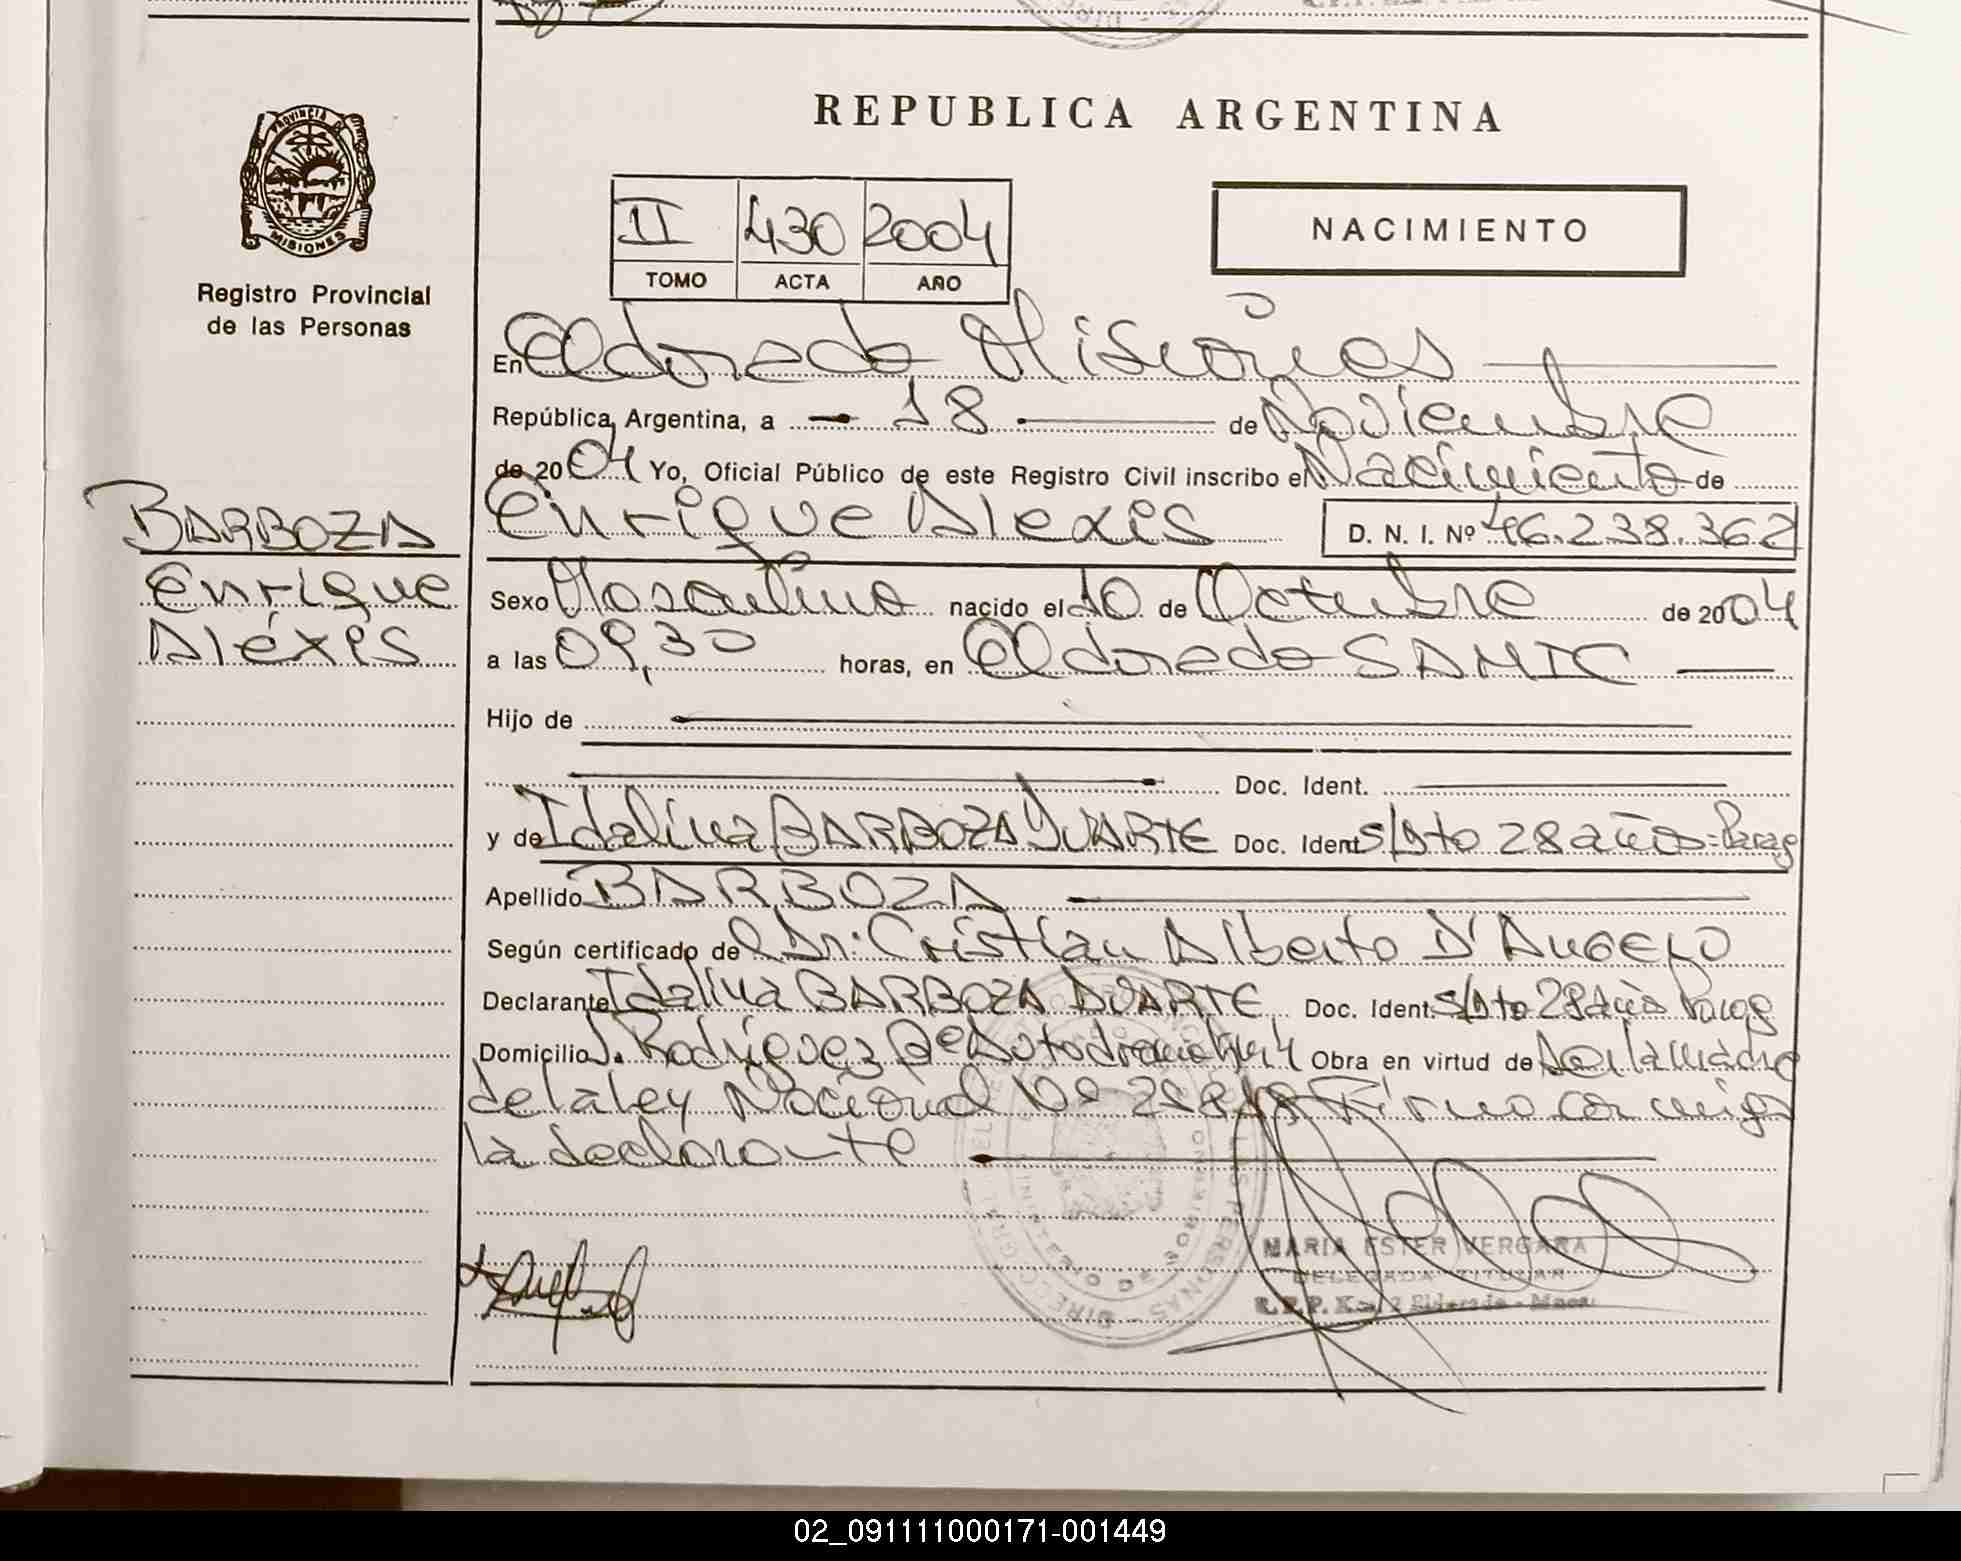 REPUBLICA ARGENTINA
PROVINCIA DE
MISIONES
Registro Provincial
de las Personas
II 430 2004
TOMO ACTA AÑO
NACIMIENTO
En Eldorado Misiones
República Argentina, a 18 de Noviembre
de 2004 Yo, Oficial Público de este Registro Civil inscribo el Nacimiento de
Enrique Alexis D. N. I. Nº 46.238.362
BARBOZA
Enrique
Aléxis
Sexo Masculino nacido el 10 de Octubre de 2004
a las 09,30 horas, en Eldorado SAMIC
Hijo de
Doc. Ident.
y de Idalina BARBOZA DUARTE Doc. Ident. s/Dto 28 años=Parag
Apellido BARBOZA
Según certificado del Dr: Cristian Alberto D'ANGELO
Declarante Idalina BARBOZA DUARTE Doc. Ident. s/Dto 28 años Parag
Domicilio Rodriguez Obra en virtud de Ser la madre
de la ley Nacional Firma conmigo
la declarante
MARIA ESTER VERGARA
DELEGADA TITULAR
R.P.P. Km. 2 Eldorado - Mnes.
02_091111000171-001449